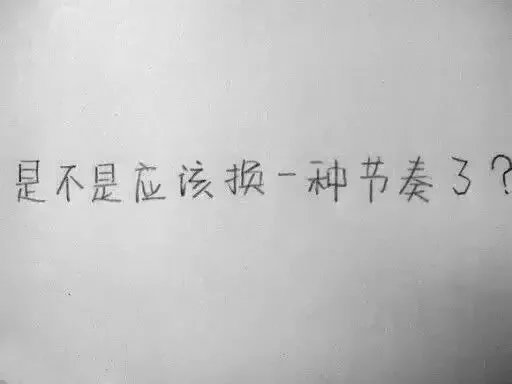 是不是应该换一种节奏了？